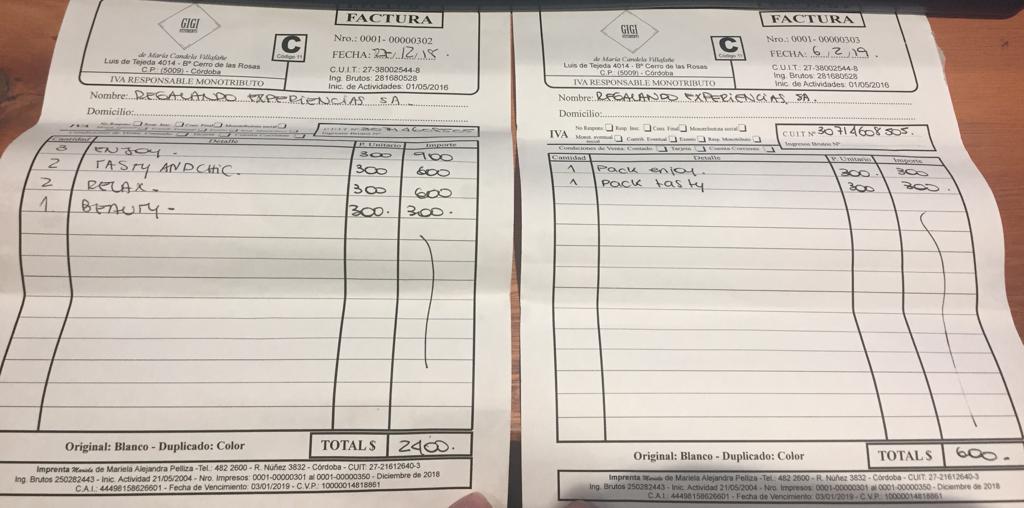 GIGI
de María Candela Villafañe
Luis de Tejeda 4014 - Bº Cerro de las Rosas
C.P.: (5009) - Córdoba
IVA RESPONSABLE MONOTRIBUTO
C
Código 11
FACTURA
Nro.: 0001- 00000302
FECHA: 12, 18.
C.U.I.T: 27-38002544-8
Ing. Brutos: 281680528
Inic. de Actividades: 01/05/2016
Nombre: REGALANDO EXPERIENCIAS SA
Domicilio:
CUIT Nº 30714608505
Cantidad Detalle P. Unitario Importe
3 ENJOY 300 900
2 TASTY AND CHIC. 300 600
2 RELAX. 300 600
1 BEAUTY - 300. 300.
Original: Blanco - Duplicado: Color TOTAL $ 2400.
Imprenta de Mariela Alejandra Pelliza -Tel.: 482 2600 - R. Núñez 3832 - Córdoba - CUIT: 27-21612640-3
Ing. Brutos 250282443 - Inic. Actividad 21/05/2004 - Nro. Impresos: 0001-00000301 al 0001-00000350 - Diciembre de 2018
C.A.I.: 44498158626601 - Fecha de Vencimiento: 03/01/2019 - C.V.P.: 10000014818861
GIGI
de María Candela Villafañe
Luis de Tejeda 4014 - Bº Cerro de las Rosas
C.P.: (5009) - Córdoba
IVA RESPONSABLE MONOTRIBUTO
C
Código 11
FACTURA
Nro.: 0001- 00000303
FECHA: 6, 2, 19
C.U.I.T: 27-38002544-8
Ing. Brutos: 281680528
Inic. de Actividades: 01/05/2016
Nombre: REGALANDO EXPERIENCIAS, SA.
Domicilio:
IVA
CUIT Nº 30714608505.
Ingresos Brutos Nº
Condiciones de Venta: Contado Tarjeta Cuenta Corriente
Cantidad Detalle P. Unitario Importe
1 Pack enjoy. 300. 300
1 Pack tasty 300 300.
Original: Blanco - Duplicado: Color TOTAL $ 600.
Imprenta de Mariela Alejandra Pelliza -Tel.: 482 2600 - R. Núñez 3832 - Córdoba - CUIT: 27-21612640-3
Ing. Brutos 250282443 - Inic. Actividad 21/05/2004 - Nro. Impresos: 0001-00000301 al 0001-00000350 - Diciembre de 2018
C.A.I.: 44498158626601 - Fecha de Vencimiento: 03/01/2019 - C.V.P.: 10000014818861